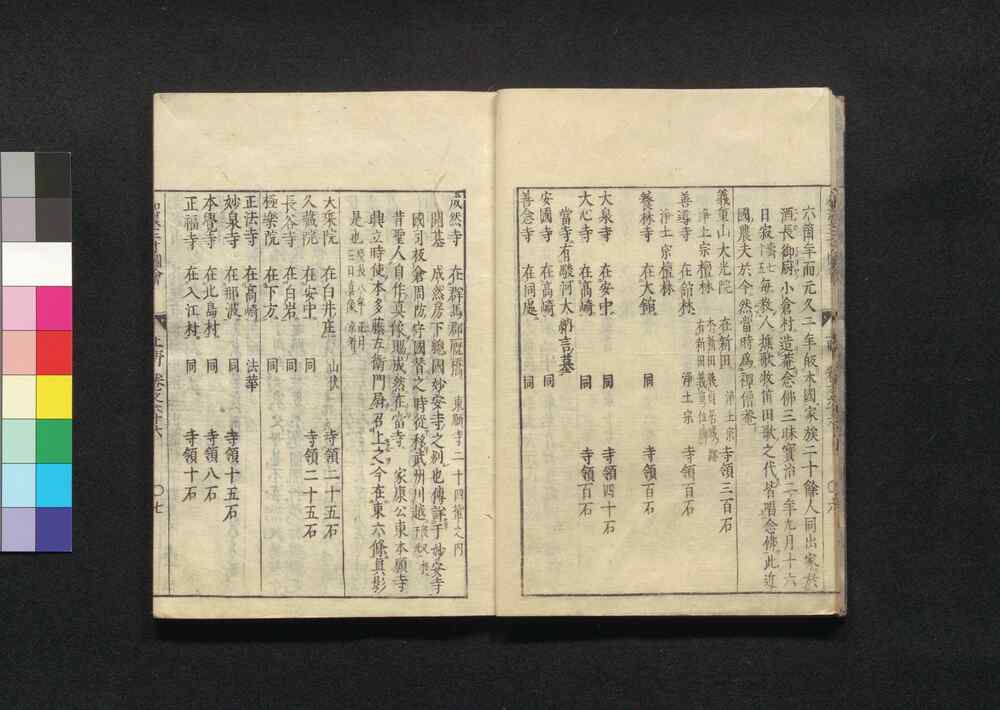 六爾年而元久二年皈本國家族二十餘人同出家於
酒長御厨小倉村造菴念佛三昧寶治二年九月十六
日寂壽七十五每敎人樵歌牧笛田歌之代皆唱念佛此近
國農夫於今然當時爲禪僧菴
義重山大光院 在新田 淨土宗 寺領三百石
淨土宗檀林
善導寺 在舘林 淨土宗 寺領百石
淨土宗檀林
養林寺 在大舘 同 寺領百石
大泉寺 在安中 同 寺領四十石
大心寺 在高崎 同 寺領百石
當寺有駿河大納言墓
安國寺 在高崎 同
善念寺 在同處 同
成然寺 在群馬郡厩橋 東願寺二十四輩之內
開基 成然房下總國妙安寺之剏也傳詳于妙安寺
國司板倉周防守國替之時從移武州川越
昔聖人自作眞像賜成然在當寺 家康公東本願寺
興立時使本多藤左衛門尉召上之今在東六條眞影
是也
大乘院 在白井庄 山伏 寺領二十五石
久藏院 在安中 同 寺領二十五石
長谷寺 在白岩 同
極樂院 在下方 同
正法寺 在高崎 法華
妙泉寺 在那波 同 寺領十五石
本覺寺 在北島村 同 寺領八石
正福寺 在入江村 同 寺領十石
上野 卷之六十六 〇七